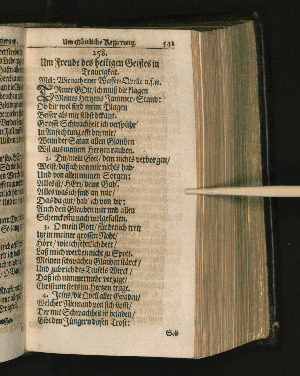 Um Göttliche Regierung. 591
258.
Um Freude des heiligen Geistes in
Traurigkeit.
Mel: Wie nach einer Wasser-Qvelle u.s.w.
TReuer Gott/ ich muß dir klagen
Meines Hertzens Jammer-Stand:
Ob dir wol sind meine Plagen
Besser als mir selbst bekant.
Grosse Schwachheit ich verspühr'
In Anfechtung oft bey mir/
Wenn der Satan allen Glauben
Wil aus meinem Hertzen rauben.
2. Du/ mein Gott/ dem nichts verborgen/
Weist/ daß ich von mir nichts hab/
Und von allen meinen Sorgen:
Alles ist/ HErr/ deine Gab'.
Alles was ich find an mir/
Das da gut/ hab' ich von dir:
Auch den Glauben mir und allen
Schenckstu nach wolgefallen.
3. O mein Gott/ für den ich tret
Itzt in meiner grossen Noht/
Höre/ wie ich sehnlich bete/
Laß mich werden nicht zu Spott.
Meinen schwachen Glauben stärck/
Und zubrich des Teufels Werck/
Daß ich nimmermehr verzage:
Christum stets im Hertzen trage.
4. Jesu/ du Quell aller Gnaden/
Welcher Niemand von sich stösst/
Der mit Schwachheit ist beladen/
Deine Jünger
Solt